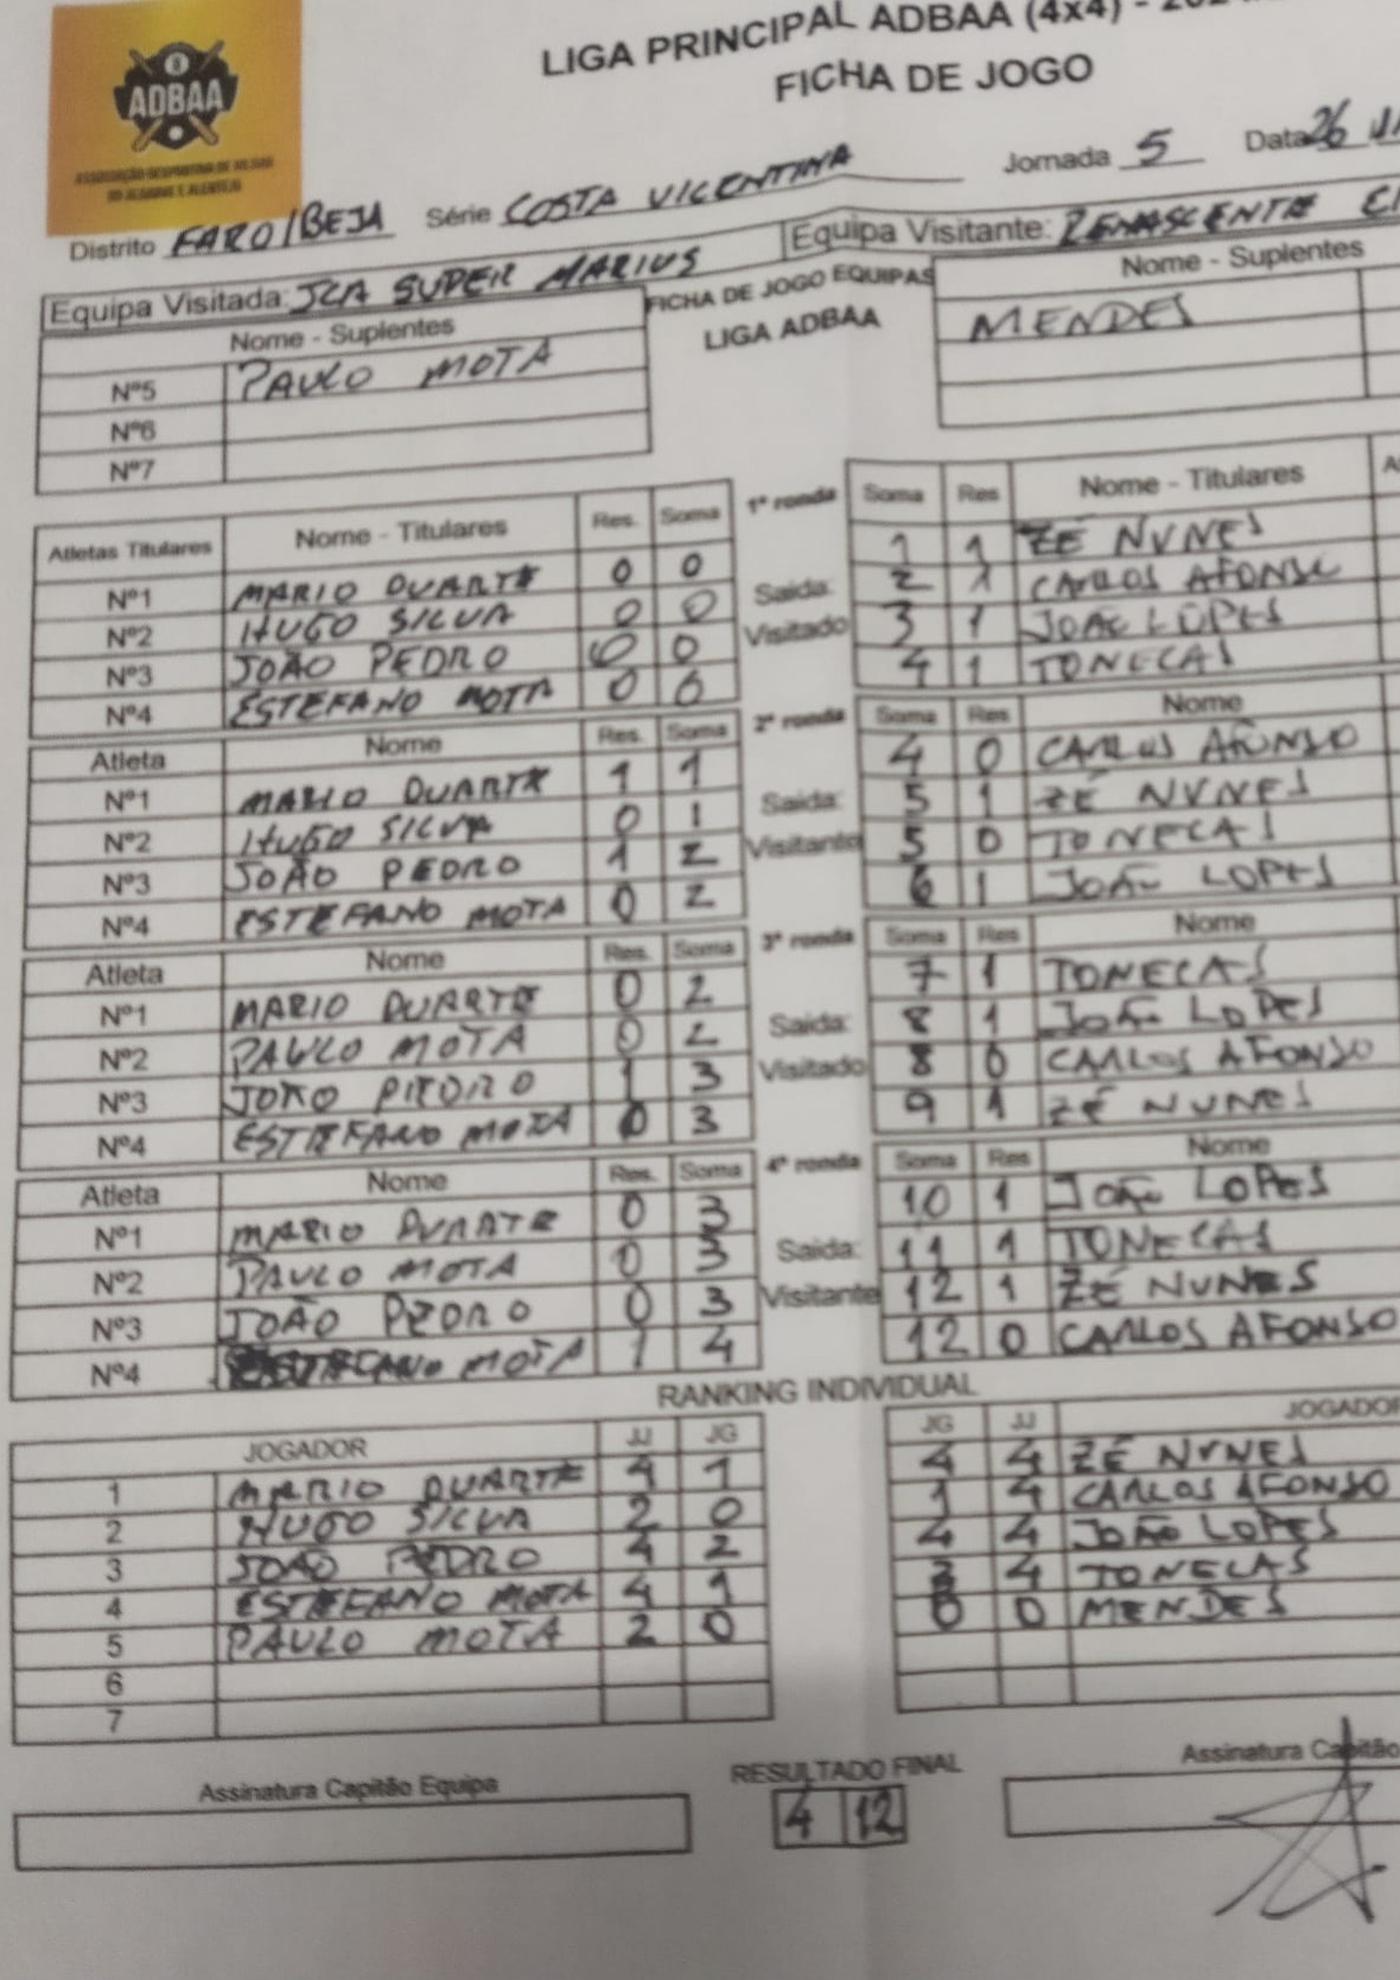 ADBAA
ASSOCIAÇÃO DESPORTIVA DE BILHAR
DO ALGARVE E ALENTEJO
LIGA PRINCIPAL ADBAA (4x4) -
FICHA DE JOGO
Distrito FARO/BEJA Série COSTA VICENTINA Jornada 5 Data 26
Equipa Visitada: JCA SUPER MARIUS Equipa Visitante: RENASCENTE
Nome - Suplentes FICHA DE JOGO EQUIPAS Nome - Suplentes
LIGA ADBAA
Nº5 PAULO MOTA MENDES
Nº6
Nº7
Atletas Titulares Nome - Titulares Res. Soma 1ª ronda Soma Res Nome - Titulares
Nº1 MARIO DUARTE 0 0 1 1 ZÉ NUNES
Nº2 HUGO SILVA 0 0 Saída: 2 1 CARLOS AFONSO
Nº3 JOÃO PEDRO 0 0 Visitado 3 1 JOÃO LOPES
Nº4 ESTEFANO MOTA 0 0 4 1 TONECAS
Atleta Nome Res. Soma 2ª ronda Soma Res Nome
Nº1 MARIO DUARTE 1 1 4 0 CARLOS AFONSO
Nº2 HUGO SILVA 0 1 Saída: 5 1 ZÉ NUNES
Nº3 JOÃO PEDRO 1 2 Visitante 5 0 TONECAS
Nº4 ESTEFANO MOTA 0 2 6 1 JOÃO LOPES
Atleta Nome Res. Soma 3ª ronda Soma Res Nome
Nº1 MARIO DUARTE 0 2 7 1 TONECAS
Nº2 PAULO MOTA 0 2 Saída: 8 1 JOÃO LOPES
Nº3 JOÃO PEDRO 1 3 Visitado 8 0 CARLOS AFONSO
Nº4 ESTEFANO MOTA 0 3 9 1 ZÉ NUNES
Atleta Nome Res. Soma 4ª ronda Soma Res Nome
Nº1 MARIO DUARTE 0 3 10 1 JOÃO LOPES
Nº2 PAULO MOTA 0 3 Saída: 11 1 TONECAS
Nº3 JOÃO PEDRO 0 3 Visitante 12 1 ZÉ NUNES
Nº4 ESTEFANO MOTA 1 4 12 0 CARLOS AFONSO
RANKING INDIVIDUAL
JOGADOR JJ JG JG JJ JOGADOR
1 MARIO DUARTE 4 1 4 4 ZÉ NUNES
2 HUGO SILVA 2 0 1 4 CARLOS AFONSO
3 JOÃO PEDRO 4 2 4 4 JOÃO LOPES
4 ESTEFANO MOTA 4 1 3 4 TONECAS
5 PAULO MOTA 2 0 0 0 MENDES
6
7
Assinatura Capitão Equipa RESULTADO FINAL Assinatura Capitão
4 12